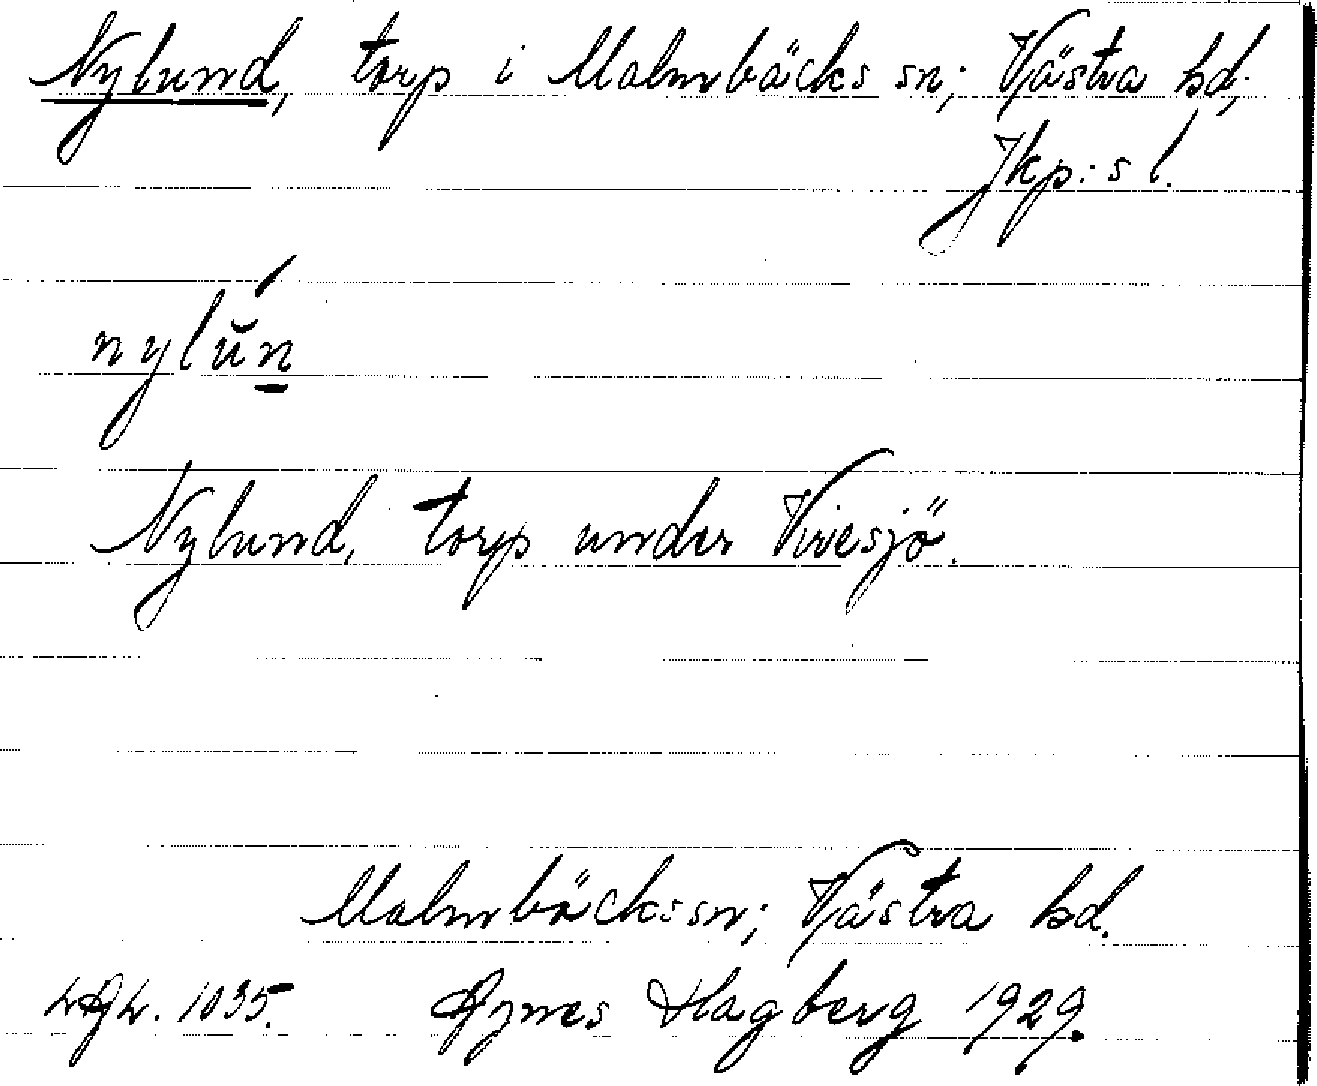 Nylund, torp i Malmbäcks sn; Västra hd;
Jkp:s l.
nylŭń
Nylund, torp under Vivesjö.
Malmbäcks sn; Västra hd.
1035. Agnes Hagberg 1929.